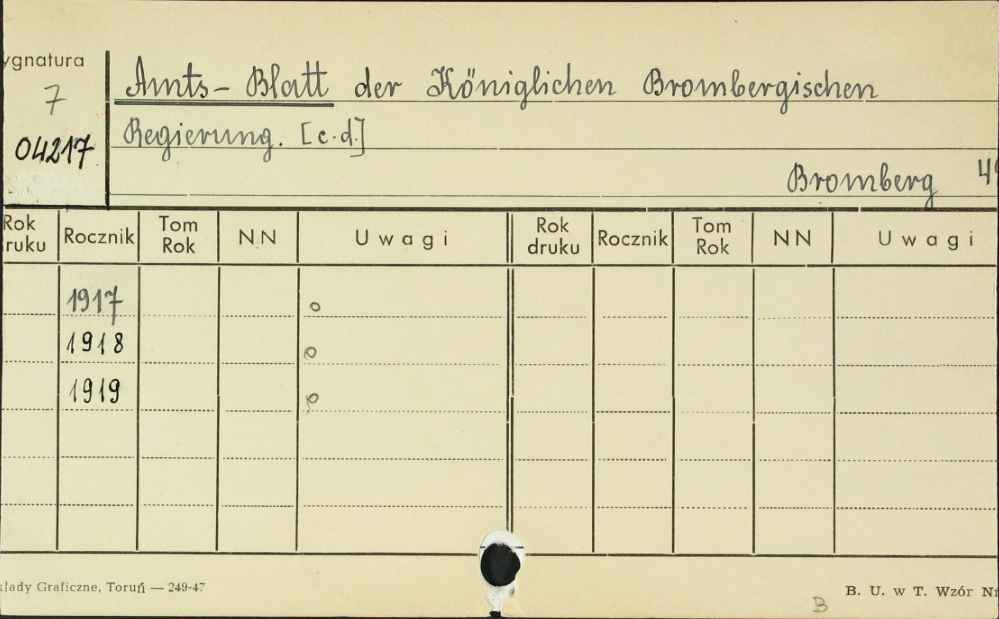 ygnatura
7
04217
Amts-Blatt der Königlichen Brombergischen
Regierung. [c.d.]
Bromberg
Rok druku Rocznik Tom Rok NN Uwagi Rok druku Rocznik Tom Rok NN Uwagi
1917 o
1918 o
1919 o
kłady Graficzne, Toruń — 249-47
B. U. w T. Wzór Nr
B